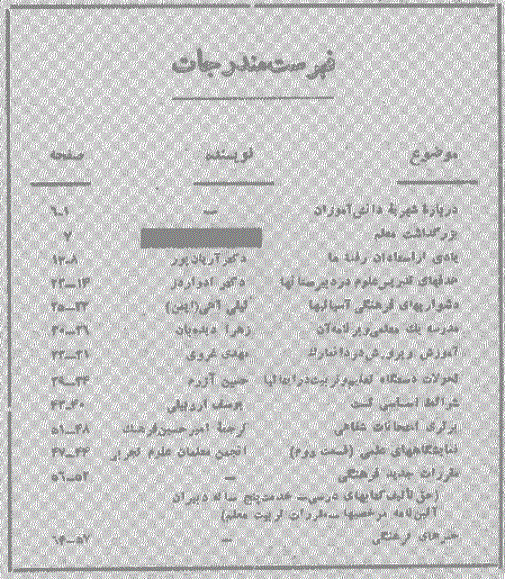 فهرست مندرجات
موضوع نویسنده صفحه
دربارهٔ شهریهٔ دانش‌آموزان — ۱-۶
بزرگداشت معلم ۷
یادی از استادان رفته ما دکتر آریان‌پور ۸-۱۲
هدفهای تدریس علوم در دبیرستانها دکتر ادواردز ۱۴-۲۳
دشواریهای فرهنگی آسیائیها لیلی آهی (ایمن) ۲۳-۲۵
مدرسه یک معلمی و برنامه آن زهرا دیده‌بان ۲۶-۳۰
آموزش و پرورش در دانمارک مهدی غروی ۳۱-۳۳
تحولات دستگاه تعلیم و تربیت در ایتالیا حسین آزرم ۳۴-۳۹
شرائط اساسی تست یوسف اردبیلی ۴۰-۴۳
برتری امتحانات شفاهی ترجمهٔ امیرحسین فرهنگ ۴۸-۵۱
نمایشگاههای علمی (قسمت دوم) انجمن معلمان علوم تجربی ۴۴-۴۷
مقررات جدید فرهنگی — ۵۲-۵۶
(حق تألیف کتابهای درسی — خدمت پنج ساله دبیران
آئین‌نامه مرخصیها — مقررات تربیت معلم)
خبرهای فرهنگی — ۵۷-۶۴